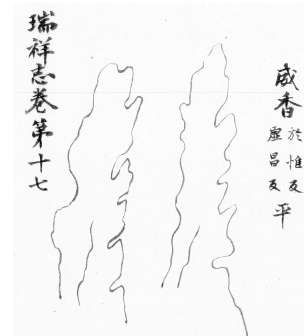 威香 於惟反 虚昌反 平
瑞祥志卷第十七